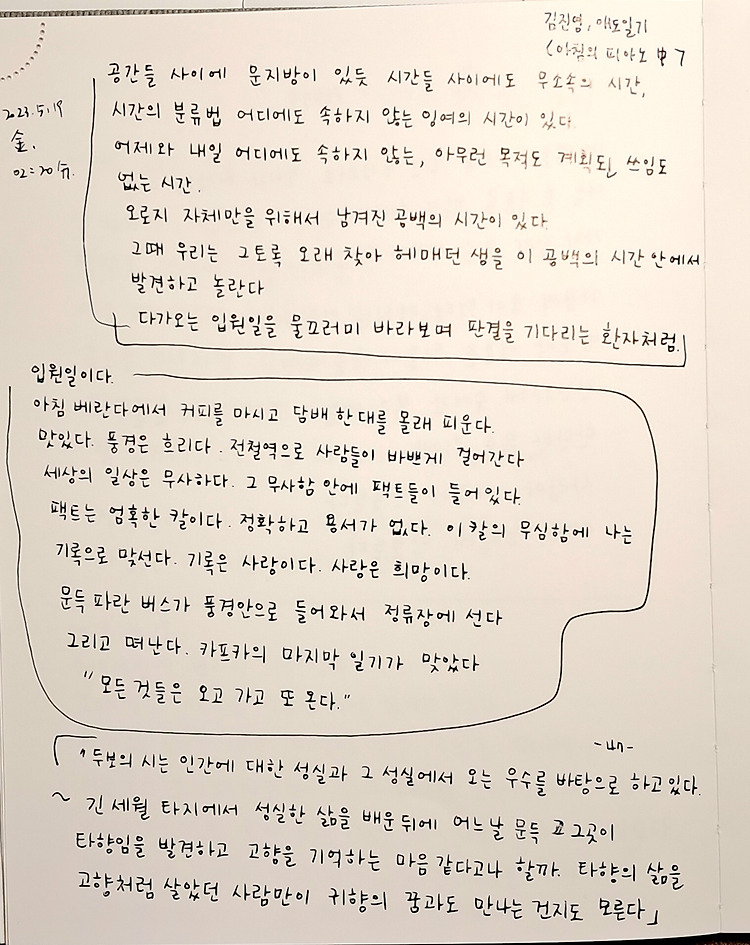 김진영, 애도일기
<아침의 피아노 中 7
공간들 사이에 문지방이 있듯 시간들 사이에도 무소속의 시간,
2023.5.19
시간의 분류법 어디에도 속하지 않는 잉여의 시간이 있다.
金.
어제와 내일 어디에도 속하지 않는, 아무런 목적도 계획도 쓰임도
02:20
없는 시간.
오로지 자체만을 위해서 남겨진 공백의 시간이 있다.
그때 우리는 그토록 오래 찾아 헤매던 생을 이 공백의 시간 안에서
발견하고 놀란다
다가오는 입원일을 물끄러미 바라보며 판결을 기다리는 환자처럼.
입원일이다.
아침 베란다에서 커피를 마시고 담배 한대를 몰래 피운다.
맛있다. 풍경은 흐리다. 전철역으로 사람들이 바쁘게 걸어간다
세상의 일상은 무사하다. 그 무사함 안에 팩트들이 들어있다.
팩트는 엄혹한 칼이다. 정확하고 용서가 없다. 이 칼의 무심함에 나는
기록으로 맞선다. 기록은 사랑이다. 사랑은 희망이다.
문득 파란 버스가 풍경안으로 들어와서 정류장에 선다
그리고 떠난다. 카프카의 마지막 일기가 맞았다
"모든 것들은 오고 가고 또 온다."
-47-
「두보의 시는 인간에 대한 성실과 그 성실에서 오는 우수를 바탕으로 하고 있다.
~ 긴 세월 타지에서 성실한 삶을 배운 뒤에 어느날 문득 그곳이
타향임을 발견하고 고향을 기억하는 마음 같다고나 할까. 타향의 삶을
고향처럼 살았던 사람만이 귀향의 꿈과도 만나는 건지도 모른다」